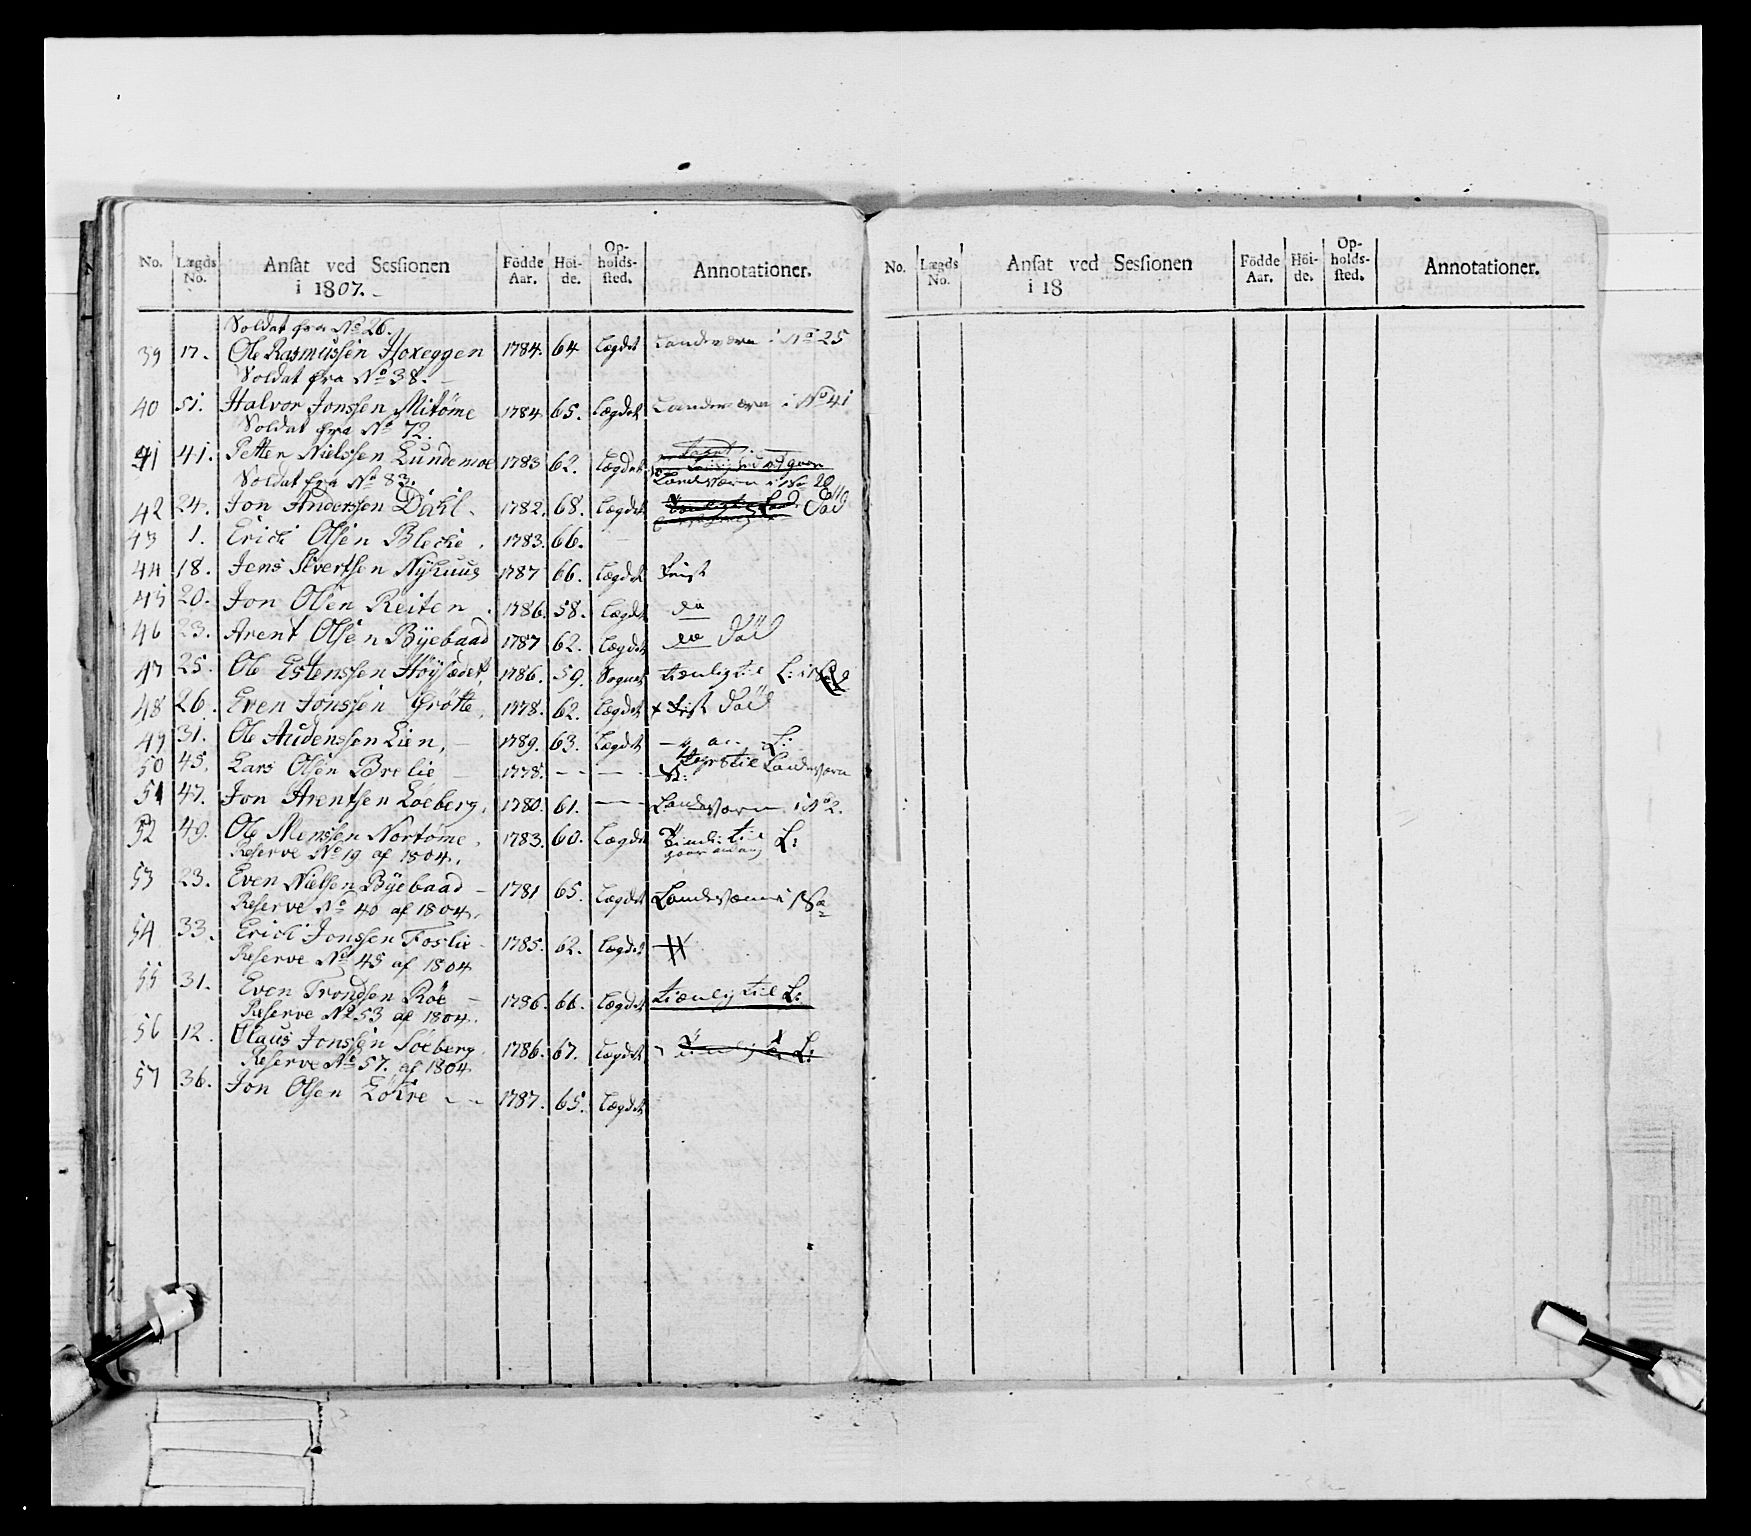 No. Lægds No. Ansat ved Sessionen i 1807. Fødde Aar. Høi-de. Op-holds-sted. Annotationer.
Soldat fra No 26.
39 17. Ole Rasmussen Hoxeggen 1784. 64 Lægdet Landeværn i No 25
Soldat fra No 38.
40 51. Halvor Jonssen Mitøme 1784 65. Lægdet Landeværn i No 41
Soldat fra No 72.
41 41. Petter Nielssen Lundemoe 1783 62. Lægdet Landeværn i No 20
Soldat fra No 83.
42 24. Jon Anderssen Dahl 1782. 68. Lægdet Død
43 1. Erich Olsen Bleche. 1783. 66.
44 18. Jens Sivertsen Nyhuus 1787 66. Lægdet Frist
45 20. Jon Olsen Reiten. 1786. 58. Lægdet do
46 23. Arent Olsen Byebaad 1787 62. Lægdet do Død
47 25. Ole Estenssen Høysædet, 1786. 59. Sognet tienlig til L:
48 26. Even Jonssen Grøtte, 1778. 62. Lægdet Frist Død
49 31. Ole Audenssen Lien, 1789. 63. Lægdet L:
50 45. Lars Olsen Brelie 1778. til Landeværn
51 47. Jon Arentsen Løeberg. 1780. 61. Landeværn i No 2.
52 49. Ole Monssen Nortøme. 1783. 60. Lægdet til L:
Reserve No 19 af 1804.
53 23. Even Nielsen Byebaad 1781 65. Lægdet Landeværn i
Reserve No 40 af 1804.
54 33. Erich Jonssen Foslie 1785. 62. Lægdet
Reserve No 45 af 1804
55 31. Even Trondsen Røe 1786. 66. Lægdet tienlig til L:
Reserve No 53 af 1804.
56 12. Claus Jonssen Soeberg. 1786. 67. Lægdet L:
Reserve No 57. af 1804
57 36. Jon Olsen Løkre 1787. 65. Lægdet
No. Lægds No. Ansat ved Sessionen i 18 Fødde Aar. Høi-de. Op-holds-sted. Annotationer.